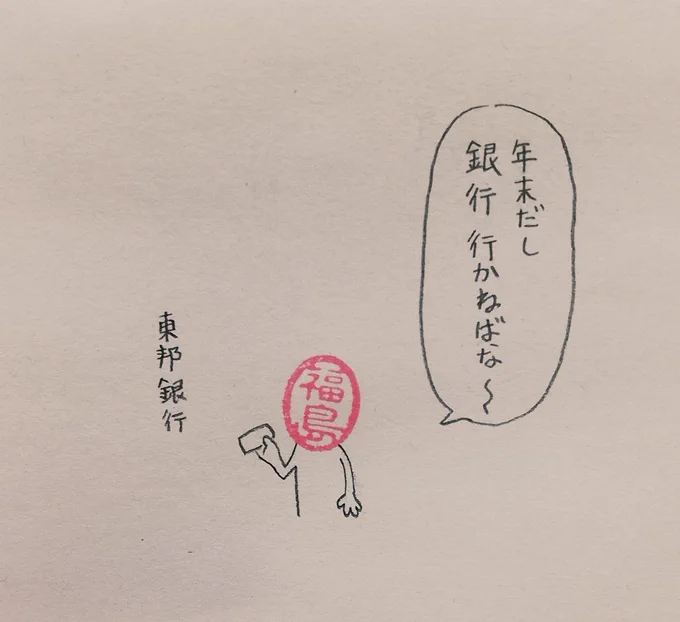 年末だし
銀行行かねばな〜
福島
東邦銀行